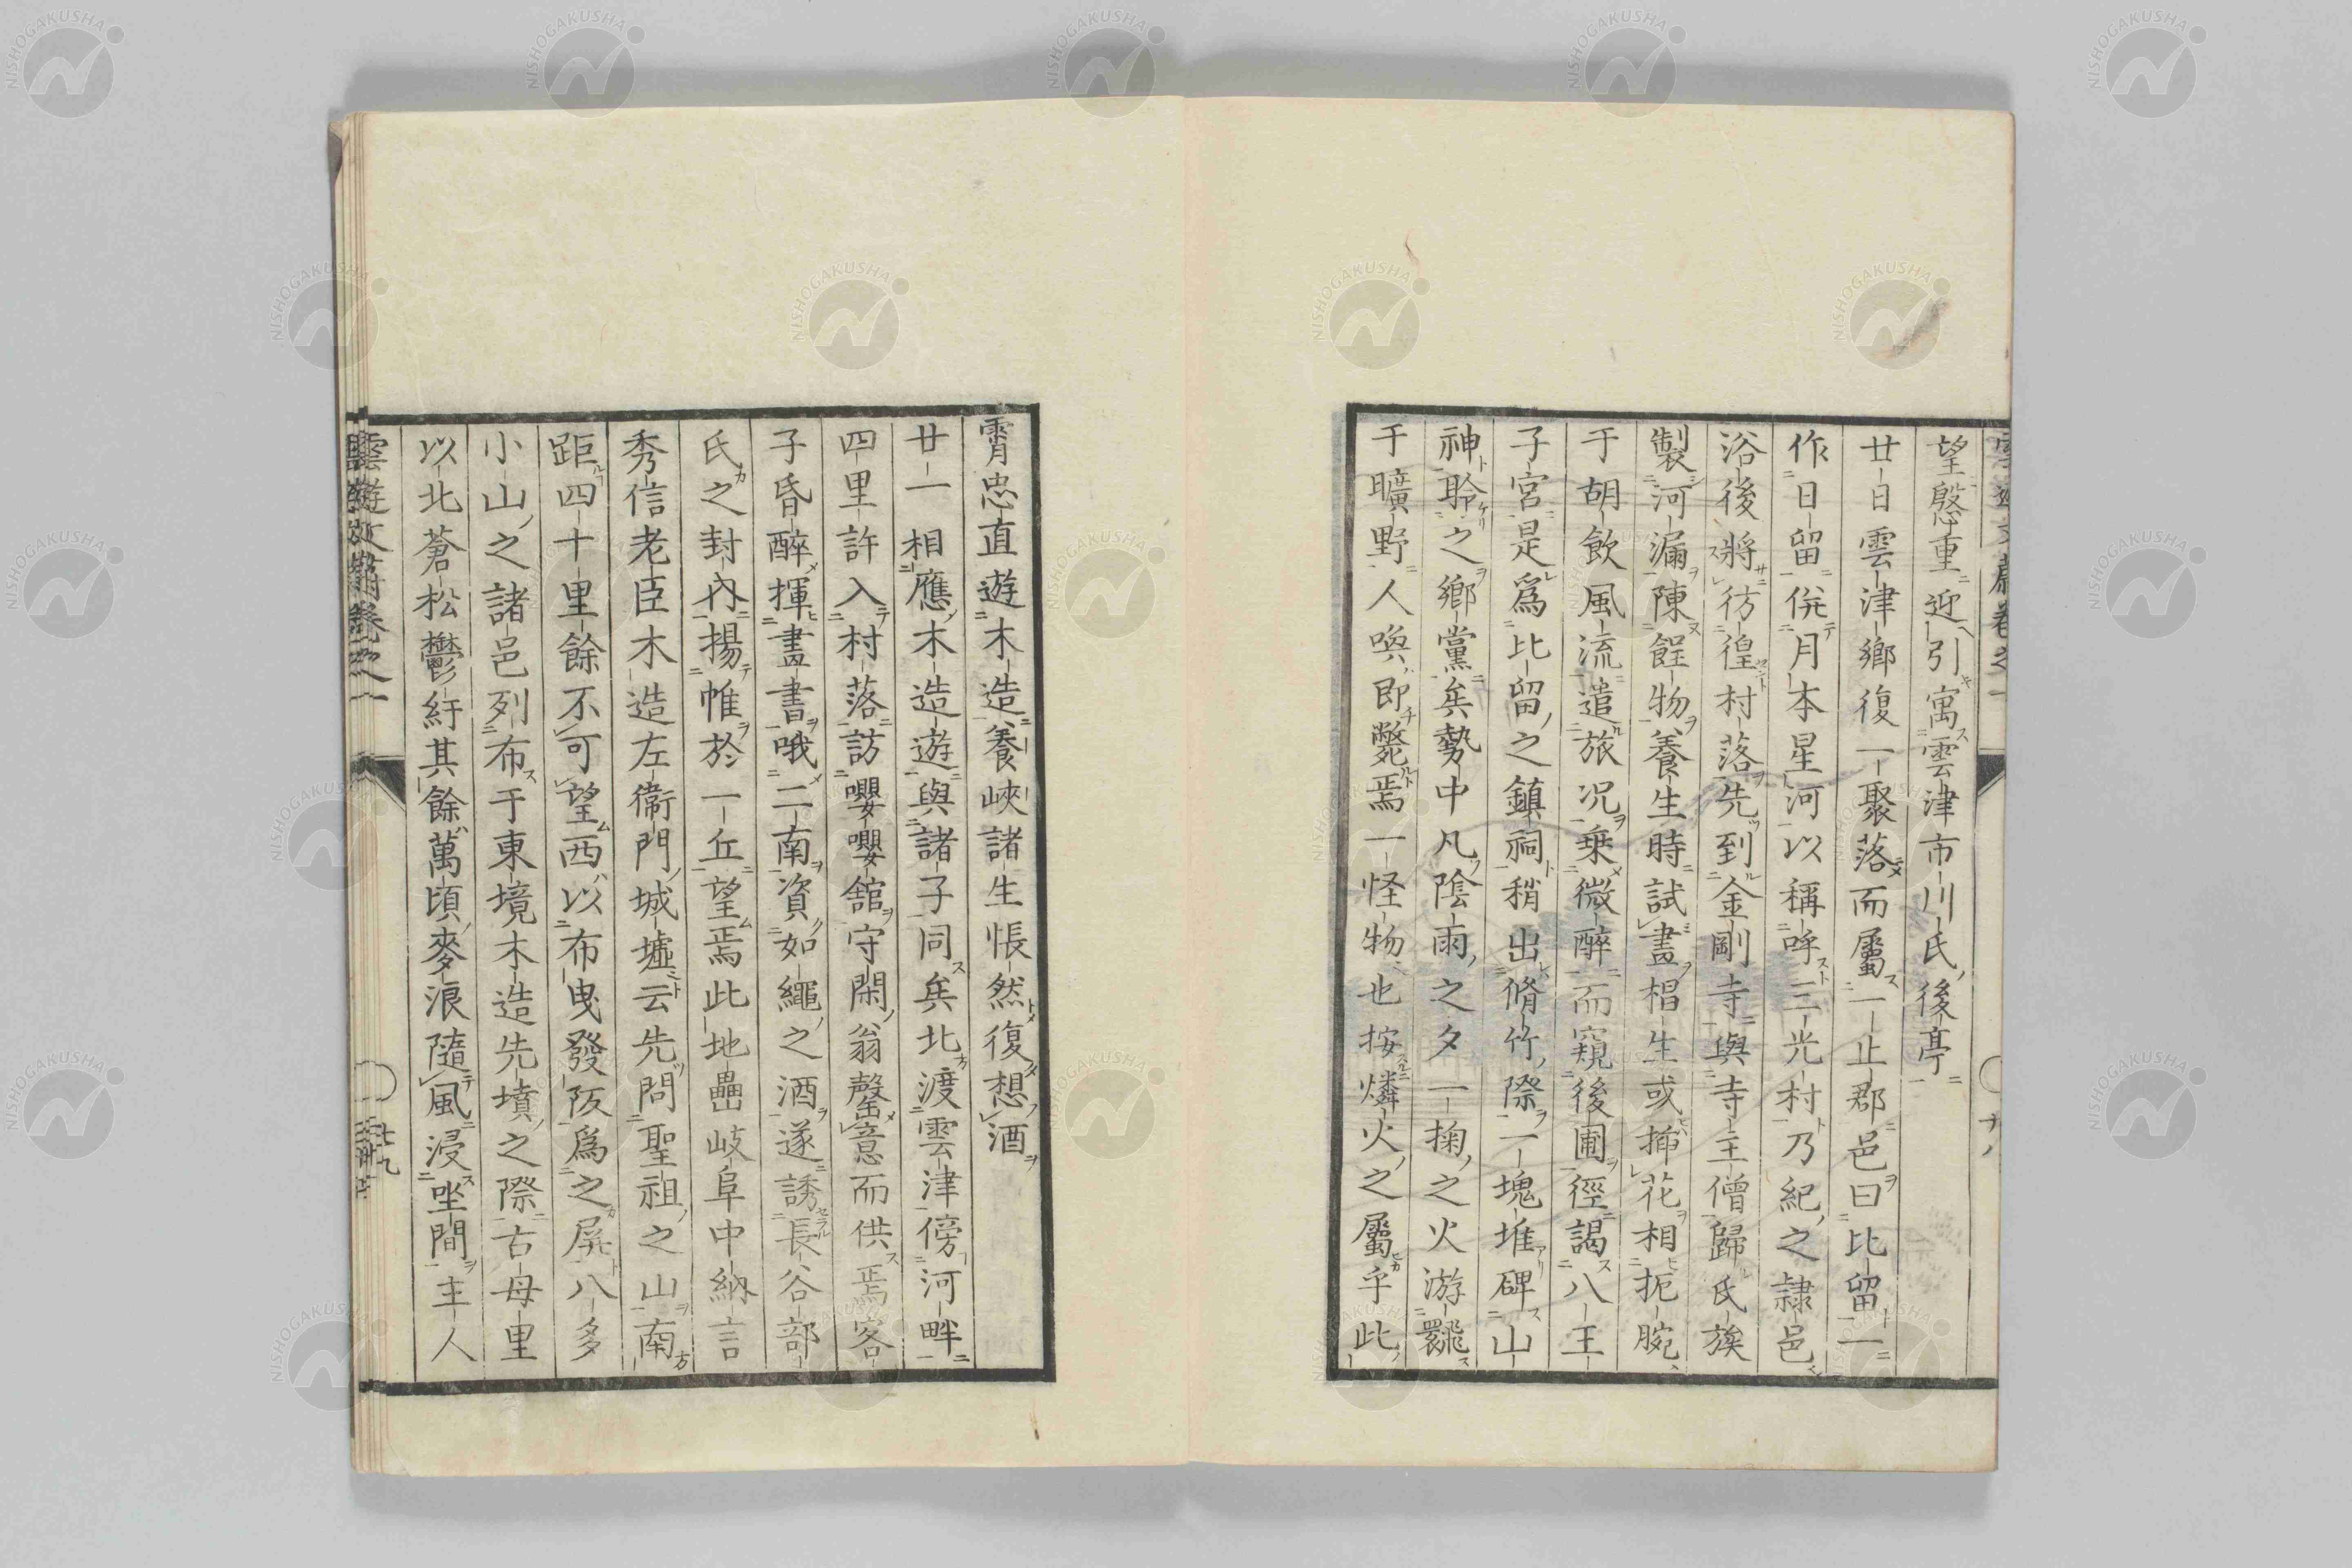 望慇重迎引寓雲津市川氏後亭
廿日雲津鄉復一聚落而屬一止郡邑曰比留一
作日留倂月本星河以稱呼三光村乃紀之隷邑
浴後將彷徨村落先到金剛寺與寺主僧歸氏族
製河漏陳餁物養生時試畫椙生或揷花相扼腕
于胡飲風流遣旅況乗微醉而窺後圃徑謁八王
子宮是爲比留之鎮祠稍出脩竹際一塊堆碑山
神聆之鄉黨矣勢中凡陰雨之夕一掬之火游飜
于曠野人喚即斃焉一怪物也按燐火之屬乎此
霄忠直遊木造養峽諸生悵然復想酒
廿一相應木造遊與諸子同矣北渡雲津傍河畔
四里許入村落訪嚶嚶舘守閑翁罄意而供焉客
子昏醉揮畫書哦二南資如繩之酒遂誘長谷部
氏之封內揚帷於一丘望焉此地壘岐阜中納言
秀信老臣木造左衞門城墟云先問聖祖之山南
距四十里餘不可望西以布曳發阪爲之屏八多
小山之諸邑列布于東境木造先墳之際古母里
以北蒼松鬱紆其餘萬頃麥浪隨風浸坐間主人
NISHOGAKUSHA